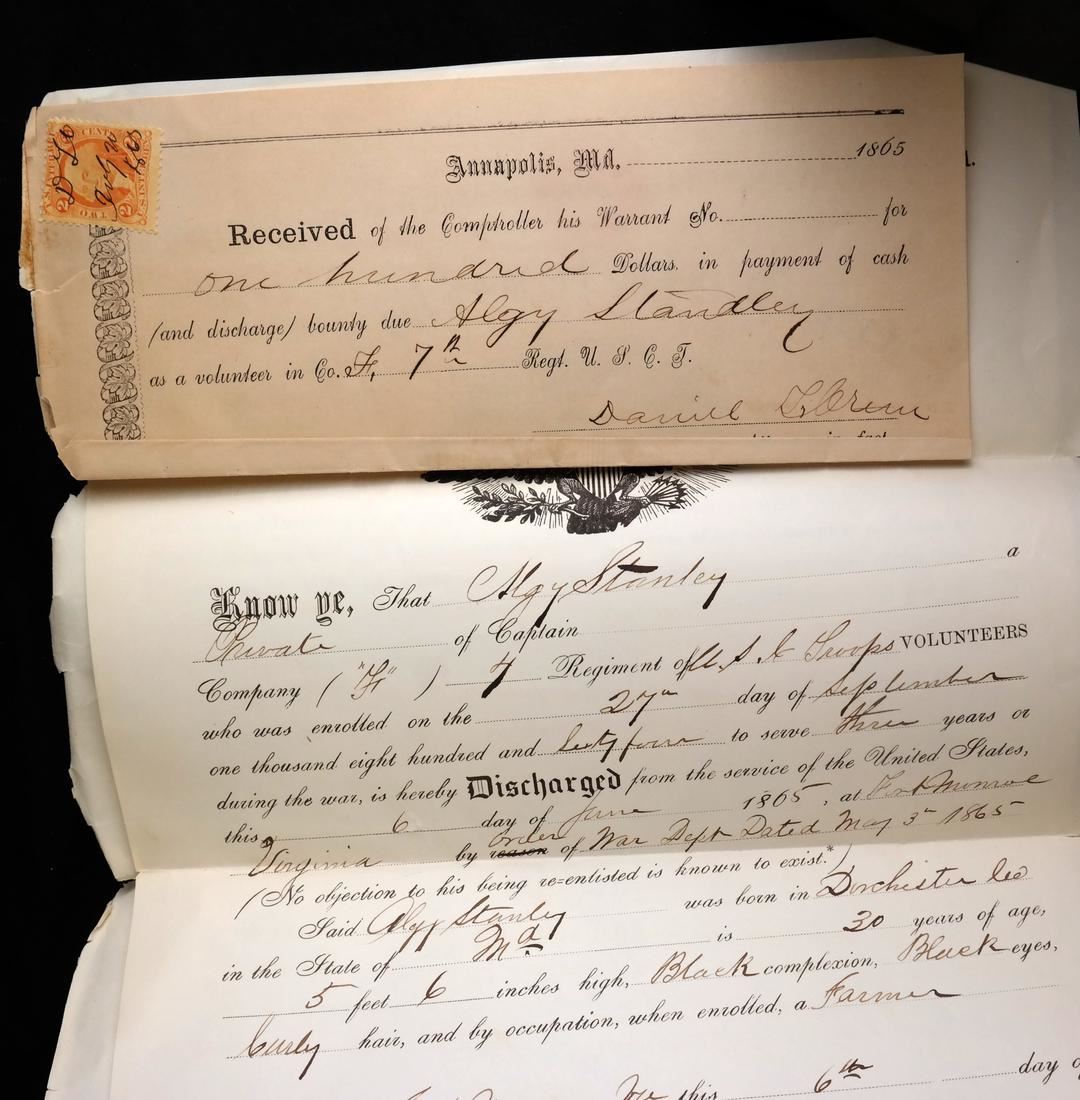 Annapolis, Md. 1865
Received of the Comptroller his Warrant No. for
one hundred Dollars. in payment of cash
/and discharge/ bounty due Algy Standley
as a volunteer in Co. F, 7th Regt. U. S. C. T.
Daniel
Know ye, That Algy Stanley a
Private of Captain
Company ("F") Regiment of U. S. Troops VOLUNTEERS
who was enrolled on the 27th day of September
one thousand eight hundred and to serve three years or
during the war, is hereby Discharged from the service of the United States,
this 6 day of June 1865, at Fort Monroe
Virginia by order reason of War Dept Dated May 3d 1865
(No objection to his being re-enlisted is known to exist.*)
Said Algy Stanley was born in Dorchester Co
in the State of Md is 30 years of age,
5 feet 6 inches high, Black complexion, Black eyes,
Curly hair, and by occupation, when enrolled, a Farmer
this 6th day